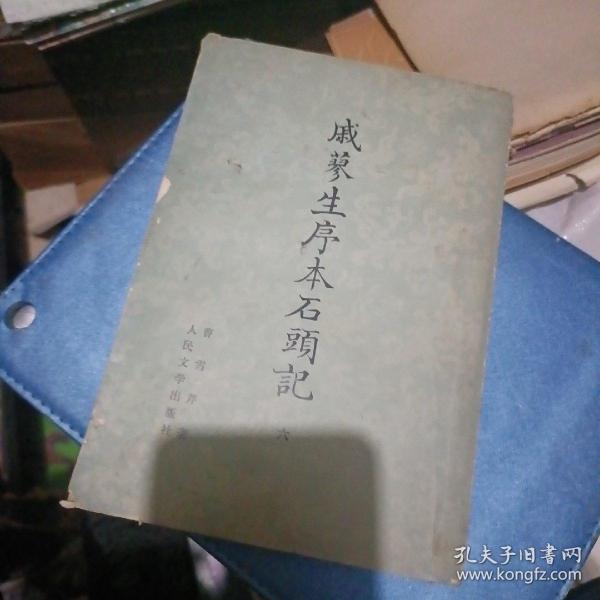 戚蓼生序本石頭記
六
曹雪芹著
人民文学出版社
孔夫子旧書网
www.kongfz.com